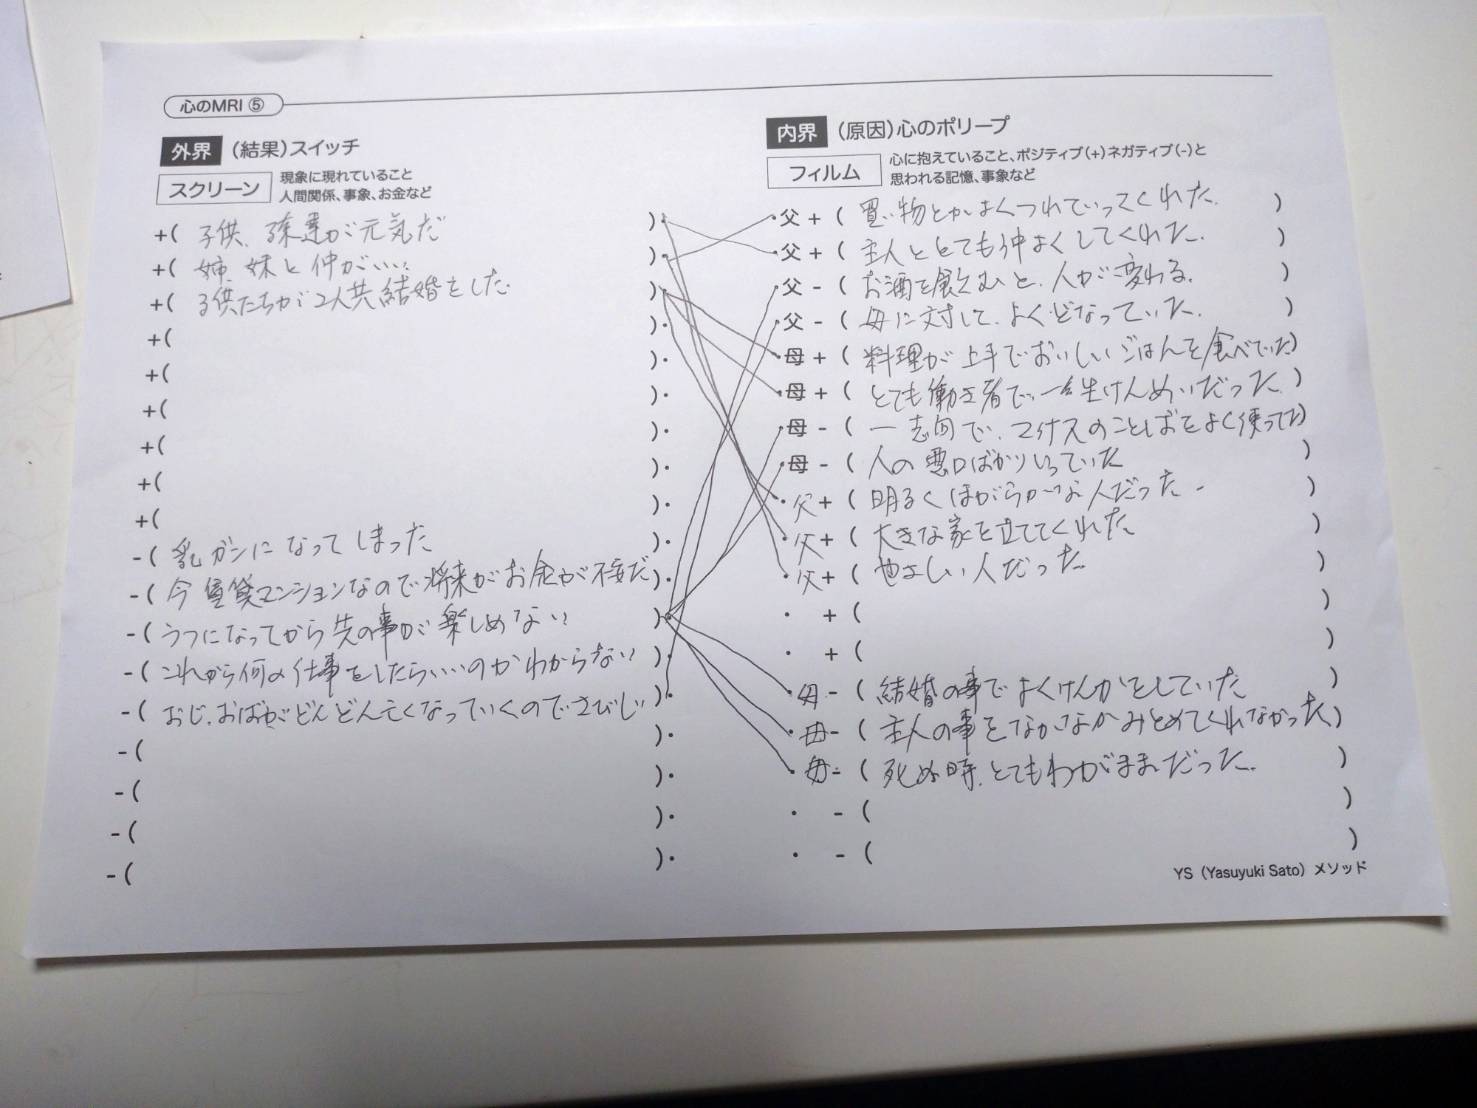 心のMRI ⑤
外界 (結果)スイッチ
スクリーン 現象に現れていること
人間関係、事象、お金など
+( 子供、孫達が元気だ )・
+( 姉、妹と仲がいい )・
+( 子供たちが2人共結婚をした )・
+( )・
+( )・
+( )・
+( )・
+( )・
+( )・
-( 乳ガンになってしまった )・
-( 今賃貸マンションなので将来がお金が不安だ )・
-( うつになってから先の事が楽しめない )・
-( これから何の仕事をしたらいいのかわからない )・
-( おじ、おばがどんどん亡くなっていくのでさびしい )・
-( )・
-( )・
-( )・
-( )・
内界 (原因)心のポリープ
フィルム 心に抱えていること、ポジティブ(+)ネガティブ(-)と
思われる記憶、事象など
・父 + ( 買い物とかよくつれていってくれた。 )
・父 + ( 主人ととても仲よくしてくれた。 )
・父 - ( お酒を飲むと、人が変わる。 )
・父 - ( 母に対して、よくどなっていた。 )
・母 + ( 料理が上手でおいしいごはんを食べていた )
・母 + ( とても働き者で、一生けんめいだった )
・母 - ( で、マイナスのことばをよく使ってた )
・母 - ( 人の悪口ばかりいっていた )
・父 + ( 明るくほがらかな人だった )
・父 + ( 大きな家を立ててくれた )
・父 + ( しい人だった )
・ + ( )
・ + ( )
・母 - ( 結婚の事でよくけんかをしていた )
・母 - ( 主人の事をなかなかみとめてくれなかった )
・母 - ( 死ぬ時、とてもわがままだった。 )
・ - ( )
・ - ( )
YS (Yasuyuki Sato) メソッド